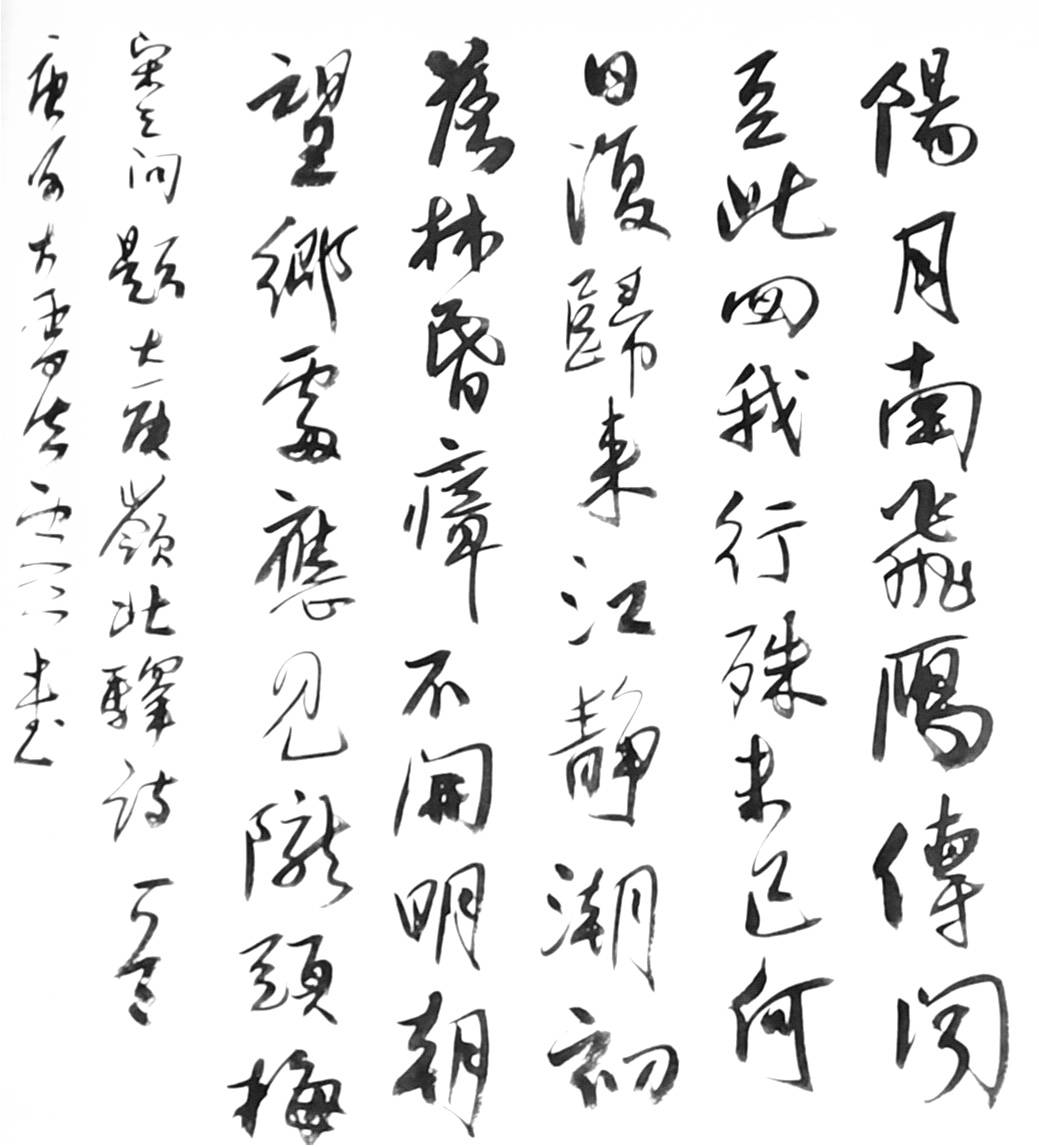 陽月南飛鴈傳聞
至此回我行殊未已何
日復歸來江靜潮初
落林昏瘴不開明朝
望鄉處應見隴頭梅
宋之問題大庾嶺北驛詩一首
庚子大雪